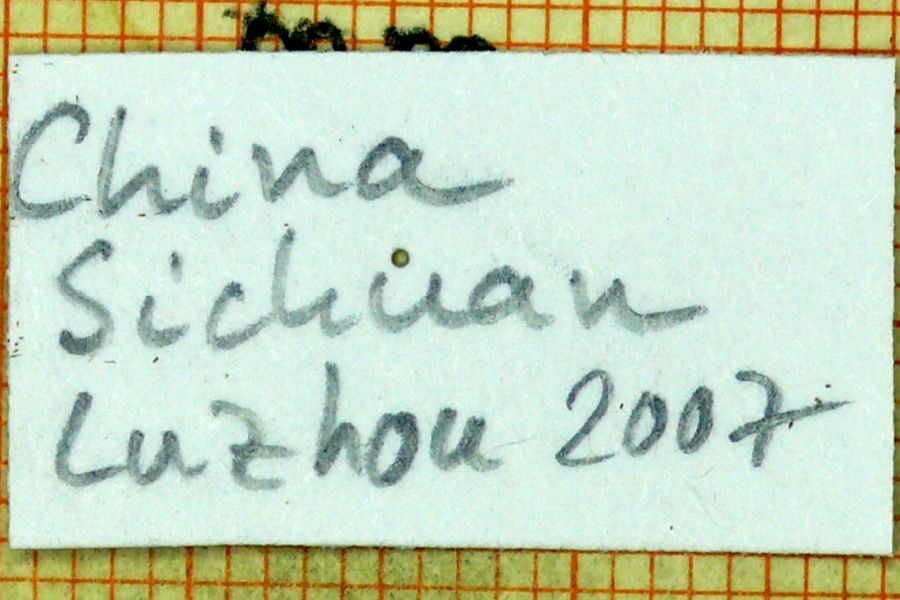 China
Sichuan
Luzhou 2007